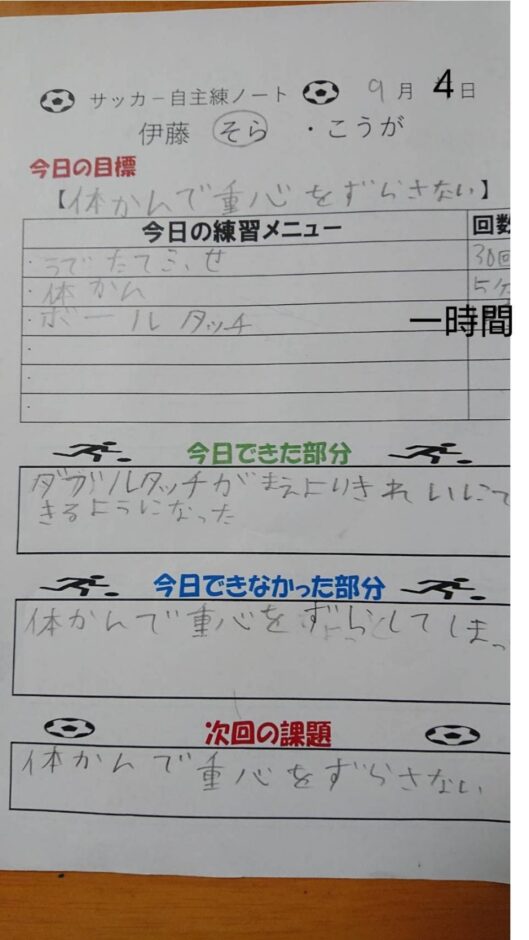 サッカー自主練ノート 9月4日
伊藤 そら ・こうが
今日の目標
【体かんで重心をずらさない】
今日の練習メニュー 回数
・うでたてふせ 30回
・体かん 5分
・ボールタッチ 一時間
・
・
・
今日できた部分
ダブルタッチがまえよりきれいにで
きるようになった
今日できなかった部分
体かんで重心をずらしてしまっ
次回の課題
体かんで重心をずらさない